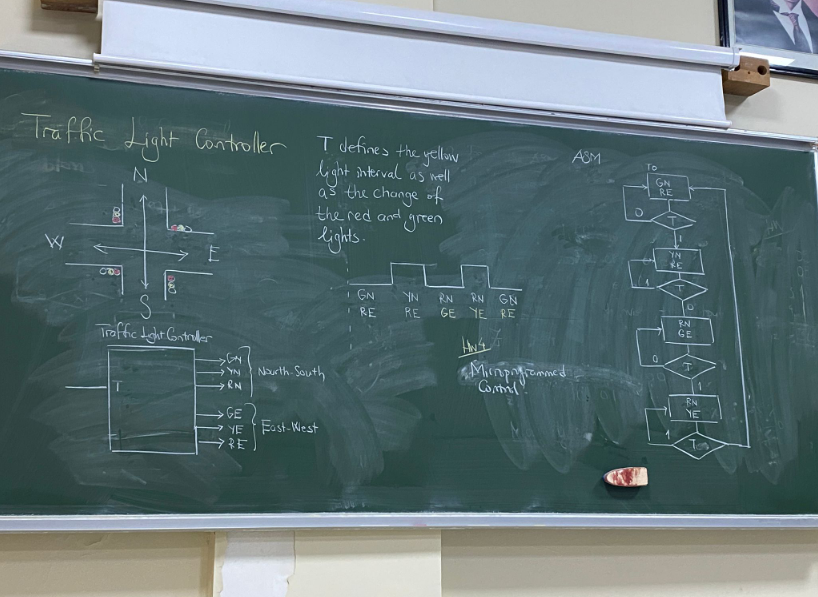 Traffic Light Controller
N
W
E
S
Traffic Light Controller
T
GN
YN
RN
North-South
GE
YE
RE
East-West
T defines the yellow
light interval as well
as the change of
the red and green
lights.
GN YN RN RN GN
RE RE GE YE RE
HW4
Microprogrammed
Control.
ASM
T0
GN
RE
0
T
1
YN
RE
1
T
0
RN
GE
0
T
1
RN
YE
1